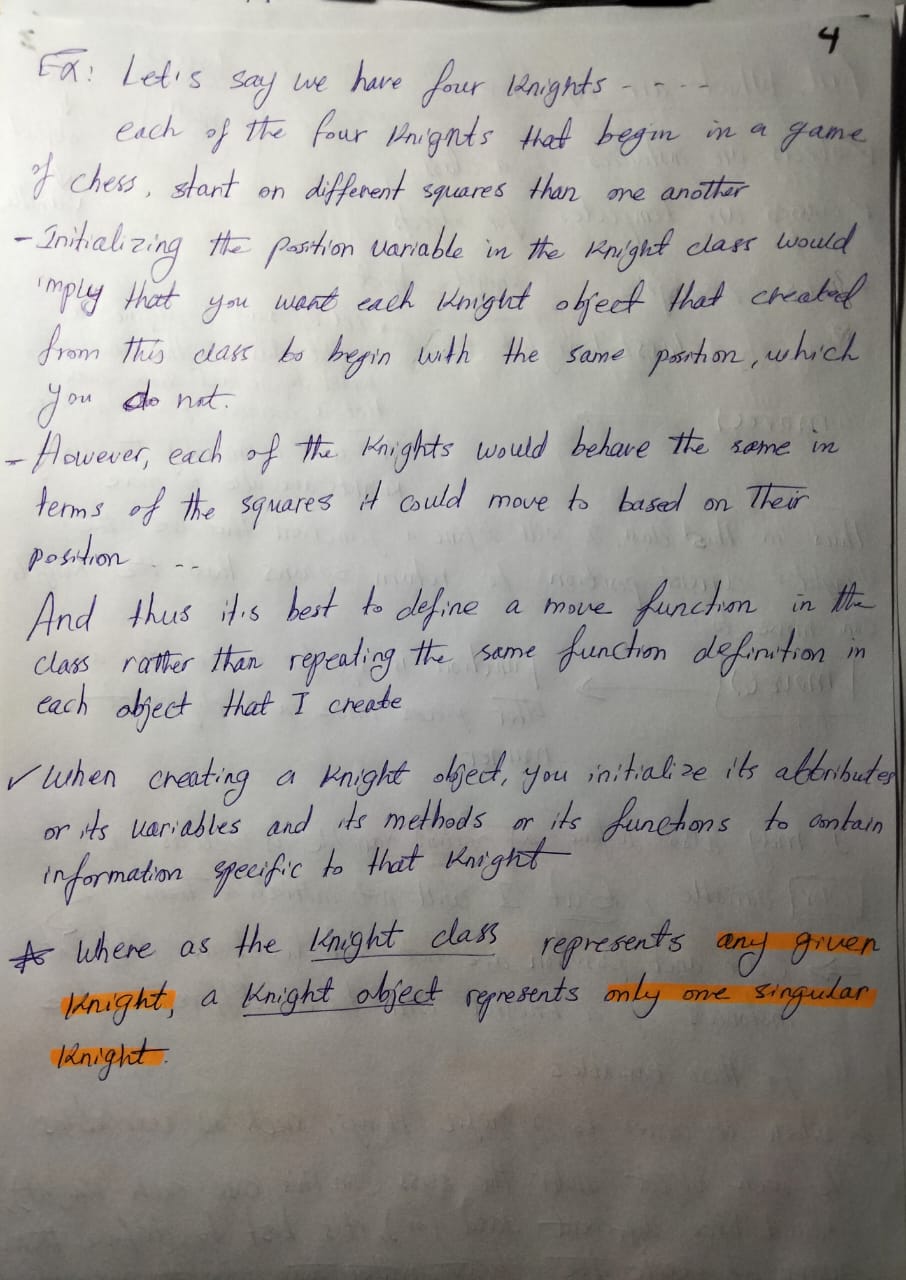 4
Ex: Let's say we have four Knights - - - -
each of the four Knights that begin in a game
of chess, start on different squares than one another
- Initializing the Position variable in the Knight class would
imply that you want each Knight object that created
from this class to begin with the same position, which
you do not.
- However, each of the Knights would behave the same in
terms of the squares it could move to based on Their
position - - -
And thus it's best to define a move function in the
class rather than repeating the same function definition in
each object that I create
✓ When creating a Knight object, you initialize its attributes
or its variables and its methods or its functions to contain
information specific to that Knight
☆ Where as the Knight class represents any given
Knight, a Knight object represents only one singular
Knight.